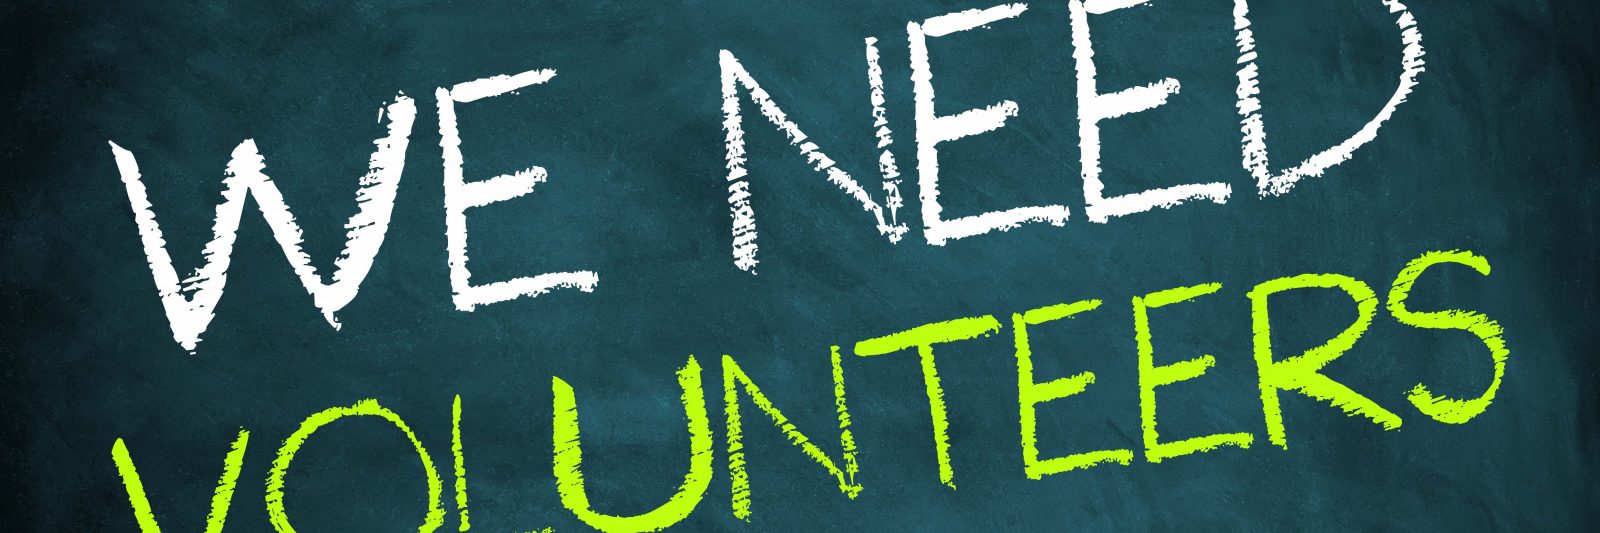 WE NEED
VOLUNTEERS